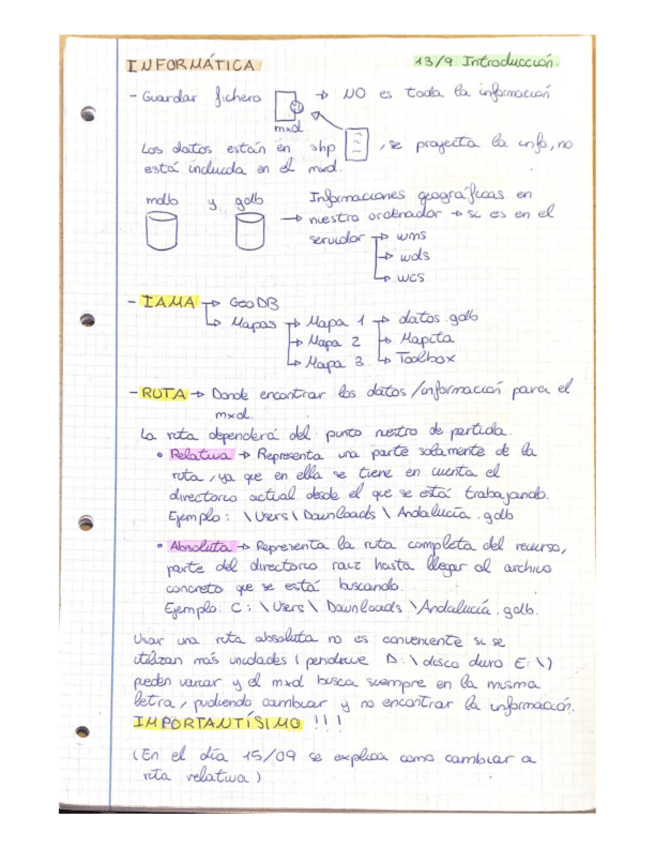 INFORMÁTICA
13/9 Introducción.
- Guardar fichero → NO es toda la información
mxd
Los datos están en shp , se proyecta la info, no
está incluida en el mxd.
mdb y gdb
Informaciones geográficas en
→ nuestro ordenador → si es en el
servidor → wms
→ wds
→ wcs
- IAMA → GeoDB
→ Mapas → Mapa 1 → datos.gdb
→ Mapa 2 → Mapita
→ Mapa 3 → Toolbox
- RUTA → Donde encontrar los datos/información para el
mxd.
La ruta dependerá del punto nuestro de partida.
• Relativa → Representa una parte solamente de la
ruta, ya que en ella se tiene en cuenta el
directorio actual desde el que se está trabajando.
Ejemplo: \Users\Downloads\Andalucía.gdb
• Absoluta → Representa la ruta completa del recurso,
parte del directorio raiz hasta llegar al archivo
concreto que se está buscando.
Ejemplo: C:\Users\Downloads\Andalucía.gdb.
Usar una ruta absoluta no es conveniente si se
utilizan más unidades (pendrive D:\ disco duro E:\)
pueden variar y el mxd busca siempre en la misma
letra, pudiendo cambiar y no encontrar la información.
IMPORTANTÍSIMO !!!
(En el día 15/09 se explica como cambiar a
ruta relativa)